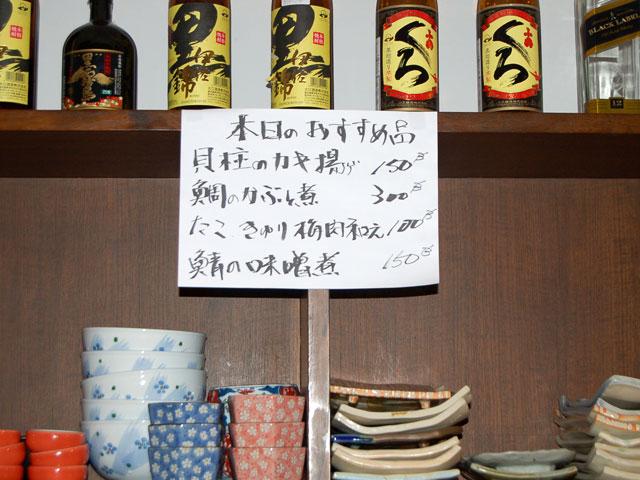 黒伊佐錦
黒伊佐錦
くろ
くろ
BLACK LABEL
12
本日のおすすめ品
貝柱のカキ揚げ 150万
鯛のかぶと煮 300万
たこ きゅり梅肉和え 100万
鯖の味噌煮 150万